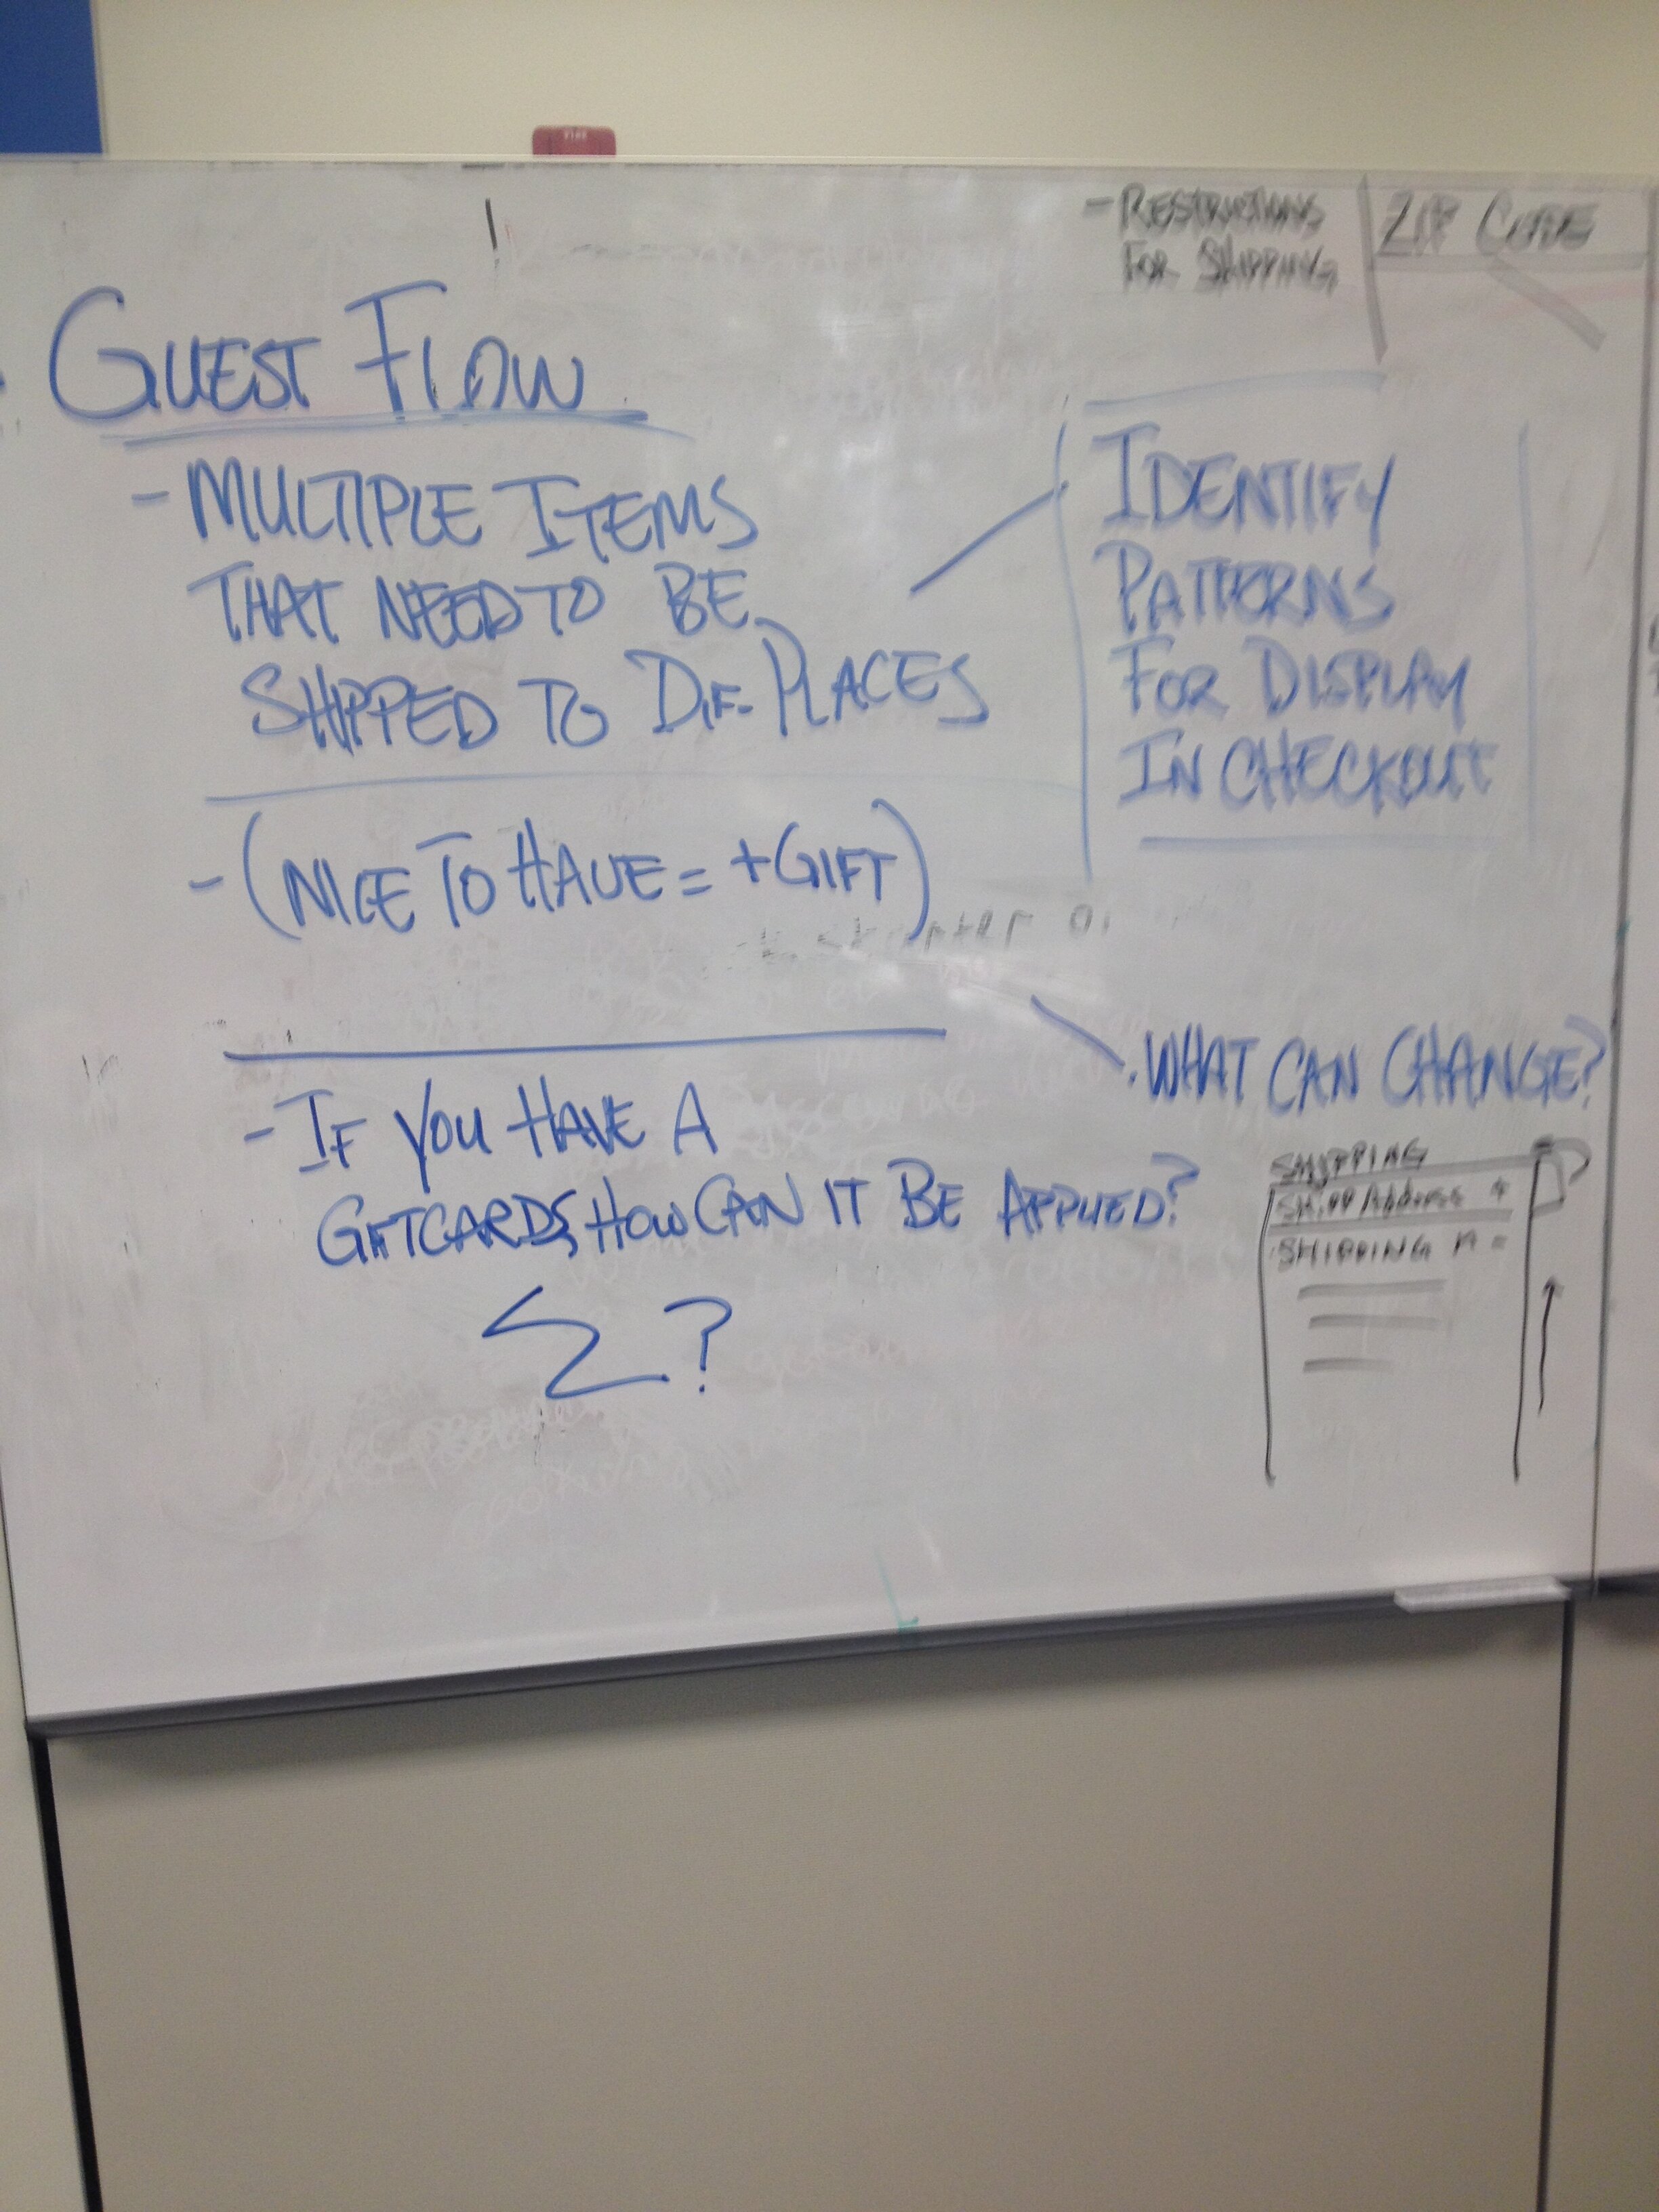 - RESTRICTIONS
FOR SHIPPING
ZIP CODE
GUEST FLOW
- MULTIPLE ITEMS
THAT NEED TO BE
SHIPPED TO DIF. PLACES
IDENTIFY
PATTERNS
FOR DISPLAY
IN CHECKOUT
- (NICE TO HAVE = + GIFT)
. WHAT CAN CHANGE?
- IF YOU HAVE A
GIFTCARDS, HOW CAN IT BE APPLIED?
?
SHIPPING
SHIPP Address +
SHIPPING